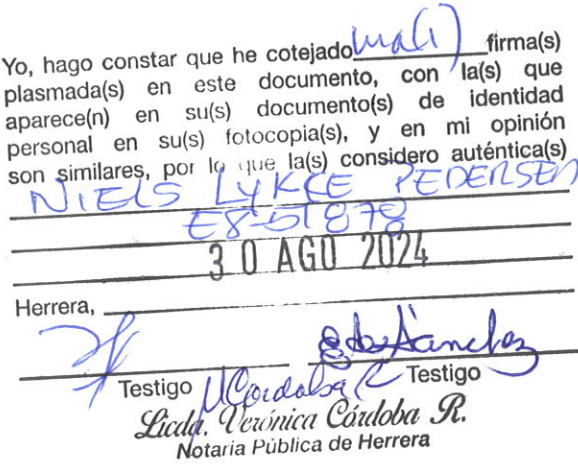 Yo, hago constar que he cotejado una(1) firma(s)
plasmada(s) en este documento, con la(s) que
aparece(n) en su(s) documento(s) de identidad
personal en su(s) fotocopia(s), y en mi opinión
son similares, por lo que la(s) considero auténtica(s)
NIELS LYKKE PEDERSEN
30 AGO 2024
Herrera,
Testigo Testigo
Licda. Verónica Córdoba R.
Notaria Pública de Herrera